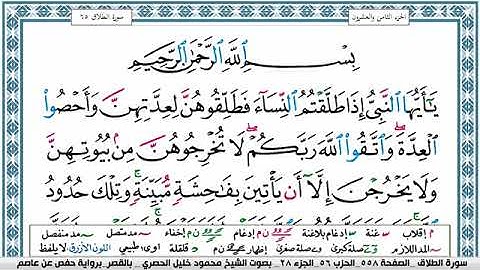 الجزء الثامن والعشرون
سورة الطلاق ٦٥
بِسْمِ اللَّهِ الرَّحْمَٰنِ الرَّحِيمِ
يَٰٓأَيُّهَا النَّبِيُّ إِذَا طَلَّقْتُمُ النِّسَآءَ فَطَلِّقُوهُنَّ لِعِدَّتِهِنَّ وَأَحْصُوا
الْعِدَّةَ ۖ وَاتَّقُوا اللَّهَ رَبَّكُمْ ۖ لَا تُخْرِجُوهُنَّ مِنۢ بُيُوتِهِنَّ
وَلَا يَخْرُجْنَ إِلَّآ أَن يَأْتِينَ بِفَٰحِشَةٍ مُّبَيِّنَةٍ ۚ وَتِلْكَ حُدُودُ
م إقلاب غنة إدغام بلاغنة إدغام إخفاء مد متصل مد منفصل
المد اللازم صلة كبرى صلة صغرى إظهار قلقلة طبيعي اللون الأزرق لا يلفظ
سورة الطلاق _صفحة ٥٥٨_ الحزب ٥٦_ الجزء ٢٨_ بصوت الشيخ محمود خليل الحصري _ بالقصر_برواية حفص عن عاصم